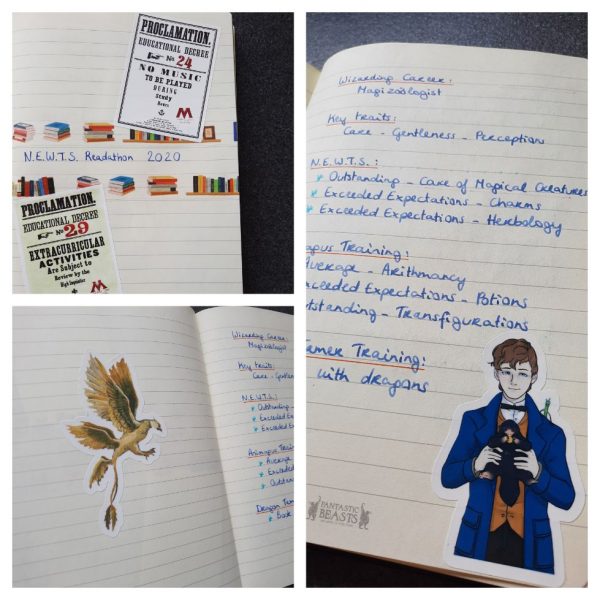 PROCLAMATION.
EDUCATIONAL DECREE
No. 24
NO MUSIC
TO BE PLAYED
DURING
Study
Hours
M
N.E.W.T.S. Readathon 2020
PROCLAMATION.
EDUCATIONAL DECREE
No. 29
EXTRACURRICULAR
ACTIVITIES
Are Subject to
Review by the
High Inquisitor
M
Wizarding Career:
Magizoologist
Key traits:
Care - Gentleness - Perception
N.E.W.T.S.:
Outstanding - Care of Magical Creatures
Exceeded Expectations - Charms
Exceeded Expectations - Herbology
agus Training:
Average - Arithmancy
xceeded Expectations - Potions
tstanding - Transfigurations
Tamer Training:
with dragons
FANTASTIC
BEASTS
Wizarding Career:
Magizoologist
Key traits:
Care - Gentlen
N.E.W.T.S.:
Outstanding -
Exceeded Ex
Exceeded Ex
Animagus Train
Average
Exceeded
Outstan
Dragon Tame
Book